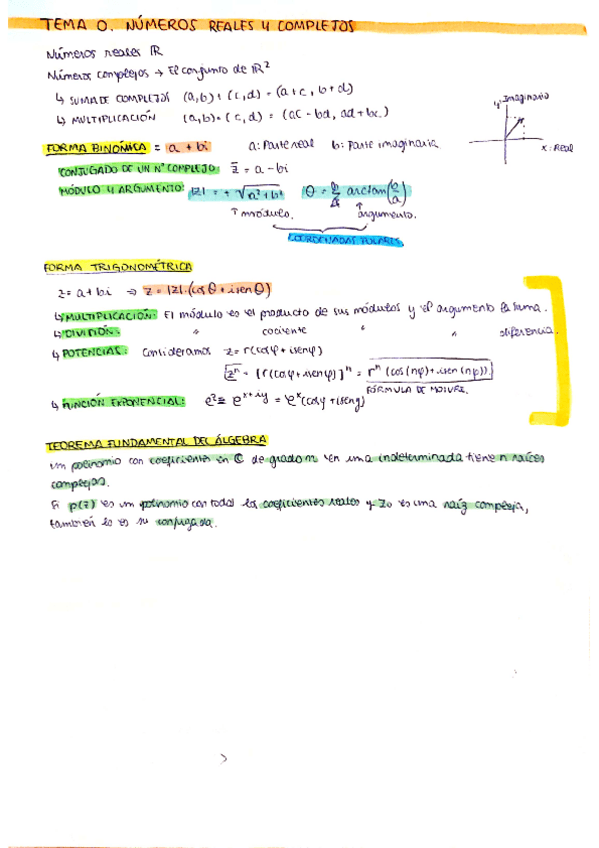 TEMA 0. NÚMEROS REALES Y COMPLEJOS
Números reales ℝ
Números complejos → El conjunto de ℝ²
↳ SUMA DE COMPLEJOS (a,b) + (c,d) = (a+c, b+d)
↳ MULTIPLICACIÓN (a,b)·(c,d) = (ac - bd, ad + bc)
y: Imaginario
x: Real
FORMA BINÓMICA = a + bi a: Parte real b: Parte imaginaria
CONJUGADO DE UN Nº COMPLEJO: z̄ = a - bi
MÓDULO Y ARGUMENTO: |z| = + √a²+b² θ = arctan
↑ módulo. ↑ argumento.
COORDENADAS POLARES
FORMA TRIGONOMÉTRICA
z = a + bi ⇒ z = |z|·(cos θ + i sen θ)
↳ MULTIPLICACIÓN: El módulo es el producto de sus módulos y el argumento la suma.
↳ DIVISIÓN: " cociente " " diferencia.
↳ POTENCIAS: Consideramos z = r(cos φ + i sen φ)
zⁿ = [r(cos φ + i sen φ)]ⁿ = rⁿ (cos (nφ) + i sen (nφ))
FÓRMULA DE MOIVRE.
↳ FUNCIÓN EXPONENCIAL: e^z = e^x+iy = e^x (cos y + i sen y)
TEOREMA FUNDAMENTAL DEL ÁLGEBRA
Un polinomio con coeficientes en ℂ de grado n en una indeterminada tiene n raíces
complejas.
Si p(z) es un polinomio con todos los coeficientes reales y z₀ es una raíz compleja,
también lo es su conjugada.